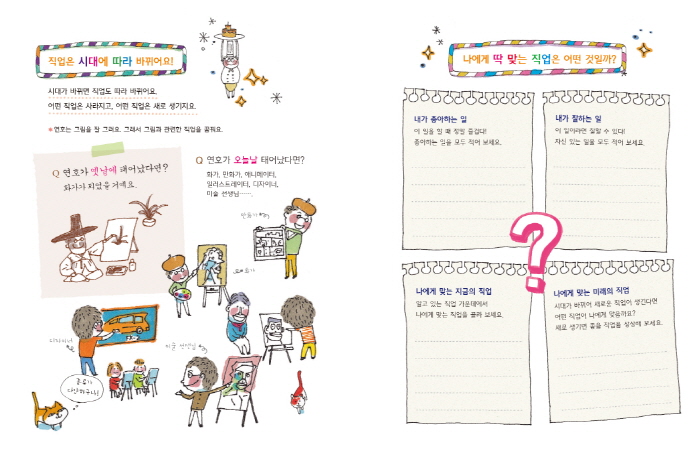 직업은 시대에 따라 바뀌어요!
시대가 바뀌면 직업도 따라 바뀌어요.
어떤 직업은 사라지고, 어떤 직업은 새로 생기지요.
연호는 그림을 잘 그려요. 그래서 그림과 관련한 직업을 꿈꿔요.
Q 연호가 옛날에 태어났다면?
화가가 되었을 거예요.
Q 연호가 오늘날 태어났다면?
화가, 만화가, 애니메이터,
일러스트레이터, 디자이너,
미술 선생님……
만화가
화가
디자이너
미술 선생님
종류가
다양하구나!
나에게 딱 맞는 직업은 어떤 것일까?
내가 좋아하는 일
이 일을 할 때 정말 즐겁다!
좋아하는 일을 모두 적어 보세요.
내가 잘하는 일
이 일이라면 잘할 수 있다!
자신 있는 일을 모두 적어 보세요.
?
나에게 맞는 지금의 직업
알고 있는 직업 가운데에서
나에게 맞는 직업을 골라 보세요.
나에게 맞는 미래의 직업
시대가 바뀌어 새로운 직업이 생긴다면
어떤 직업이 나에게 맞을까요?
새로 생기면 좋을 직업을 상상해 보세요.